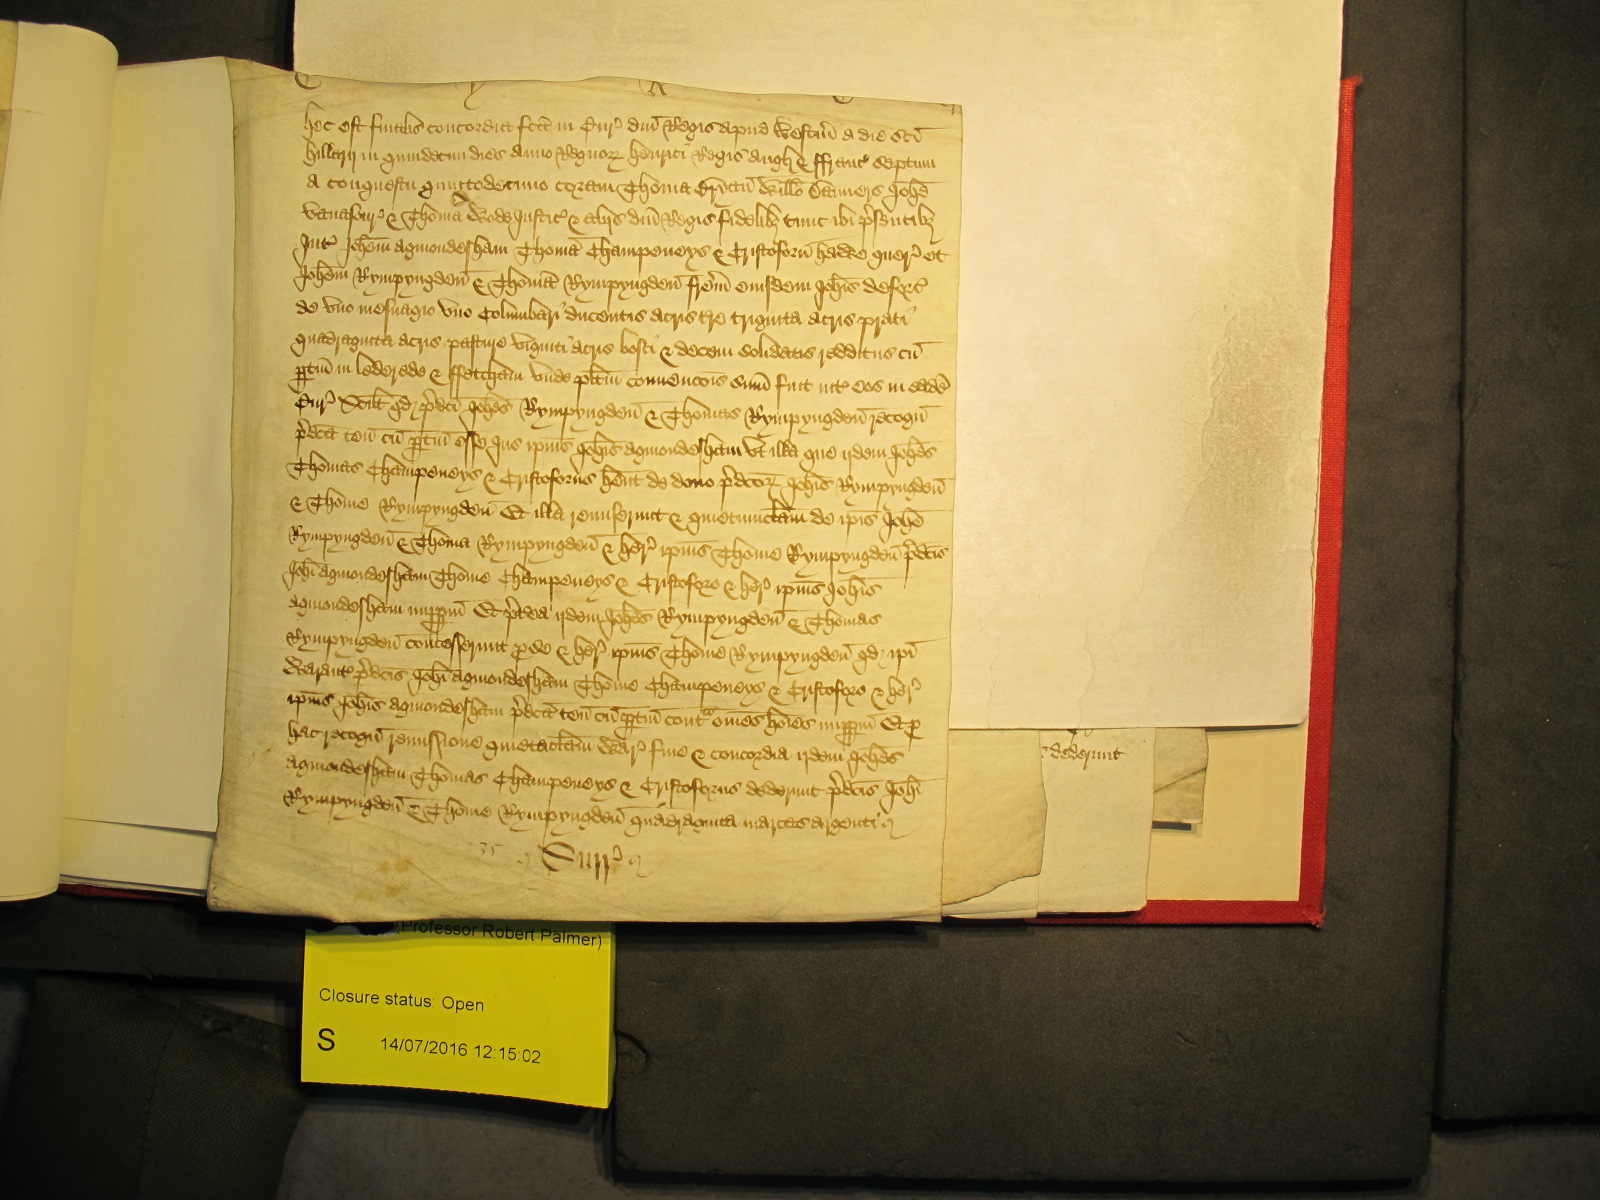 hec est finalis concordia fc̄a in Cur' dn̄i Regis apud Westm̄ a die sc̄i
hillarij in quindecim dies anno Regnoꝝ henrici Regis angł & ffranc' septimi
a conquestu quintodecimo coram Thoma Bryan Willo Danvers Joh̄e
vavasour & Thoma Wode Justic' & alijs dn̄i Regis fidelibꝫ tunc ibi p̄sentibꝫ
Int' Joh̄em agmondesham Thomā Champeneys & Cristoforū quer' et
Joh̄em Rympyngden̄ & Thomā Rympyngden̄ fr̄em eiusdem Joh̄is deforc'
de vno mesuagio vno Columbari ducentis acris tr̄e triginta acris prati
quadraginta acris pasture viginti acris bosci & decem solidatis redditus cū
ꝑtin̄ in lederede & ffetcham vnde pl̄itm̄ convencōis sum̄ fuit int' eos in eadē
Cur' Scil̄t qd p̄dc̄i Joh̄es Rympyngden̄ & Thomas Rympyngden̄ recogn̄
p̄dc̄a ten̄ cū ꝑtin̄ esse Jus ip̄ius Joh̄is agmondesham vt illa que ijdem Joh̄es
Thomas Champeneys & Cristoforus h̄ent de dono p̄dc̄oꝝ Joh̄is Rympyngden̄
& Thome Rympyngden̄ Et illa remiserunt & quietumclam̄ de ip̄is Joh̄e
Rympyngden̄ & Thoma Rympyngden̄ & her' ip̄ius Thome Rympyngden̄ p̄dc̄is
Joh̄i agmondesham Thome Champeneys & Cristoforo & her' ip̄ius Joh̄is
agmondesham imꝑꝑm̄ Et p̄terea ijdem Joh̄es Rympyngden̄ & Thomas
Rympyngden̄ concesserunt ꝓ se & her' ip̄ius Thome Rympyngden̄ qd ip̄i
Warant' p̄dc̄is Joh̄i agmondesham Thome Champeneys & Cristoforo & her'
ip̄ius Joh̄is agmondesham p̄dc̄a ten̄ cū ꝑtin̄ contᵃ om̄es ho̅ies imꝑꝑm̄ Et ꝓ
hac recogn̄ remissione quietaclam̄ War' fine & concordia ijdem Joh̄es
agmondesham Thomas Champeneys & Cristoforus dederunt p̄dc̄is Joh̄i
Rympyngden̄ & Thome Rympyngden̄ quadraginta marcas argenti
35 Surr'
dederunt
(Professor Robert Palmer)
Closure status: Open
S 14/07/2016 12:15:02